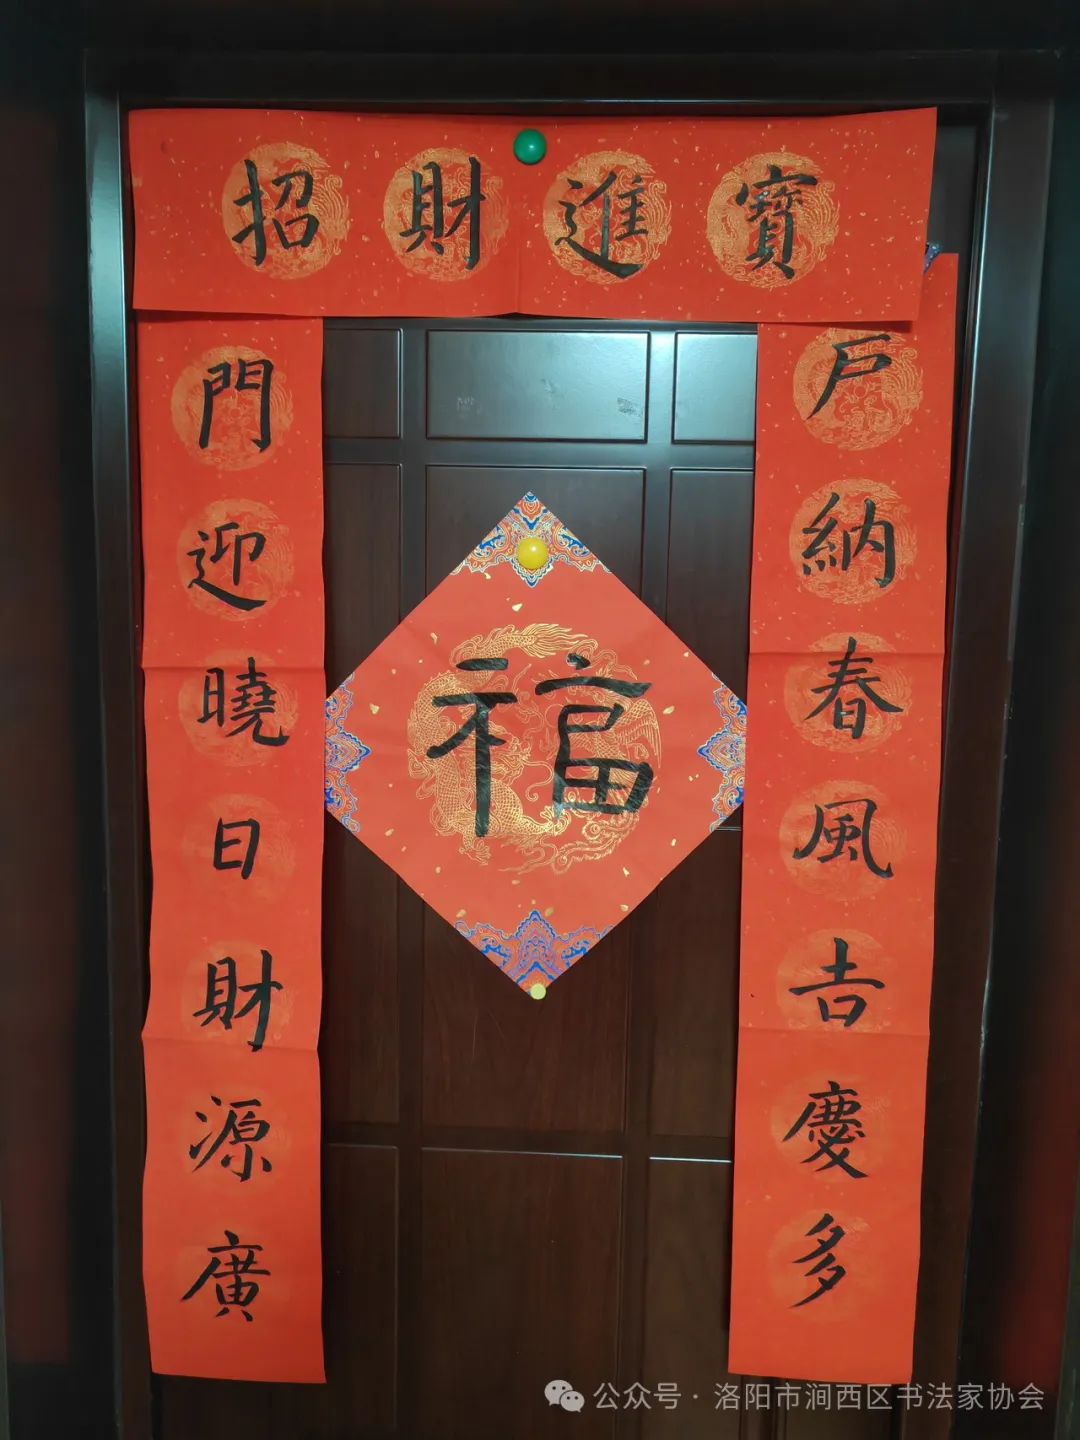 招財進寶
戶納春風吉慶多
門迎曉日財源廣
福
公众号·洛阳市涧西区书法家协会